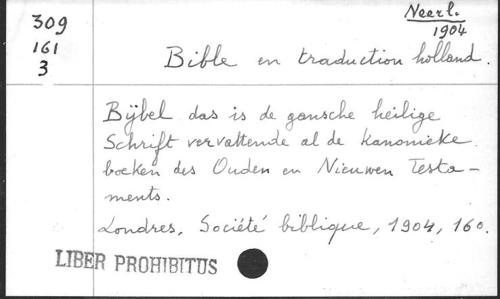 309
161
3
Neerl.
1904
Bible en traduction holland.
Bijbel das is de gansche heilige
Schrift vervattende al de kanonieke
boeken des Ouden en Nieuwen Testa-
ments.
Londres, Société biblique, 1904, 16o.
LIBER PROHIBITUS